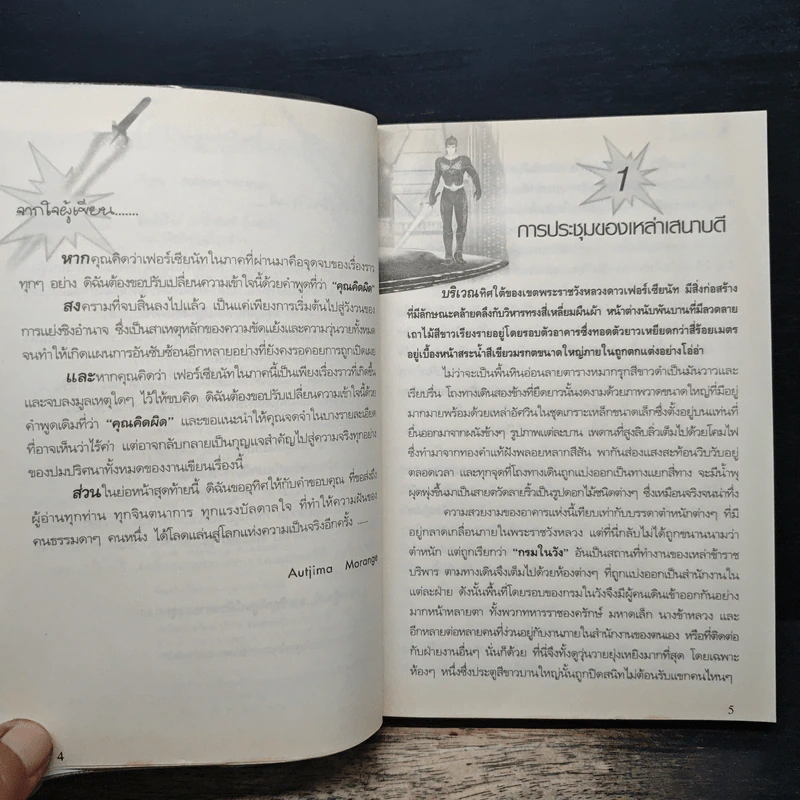 จากใจผู้เขียน.......
หากคุณคิดว่าเฟอร์เซียนัทในภาคที่ผ่านมาคือจุดจบของเรื่องราว
ทุกๆ อย่าง ดิฉันต้องขอปรับเปลี่ยนความเข้าใจนี้ด้วยคำพูดที่ว่า “คุณคิดผิด”
สงครามที่จบสิ้นลงไปแล้ว เป็นแค่เพียงการเริ่มต้นไปสู่วังวนของ
การแย่งชิงอำนาจ ซึ่งเป็นสาเหตุหลักของความขัดแย้งและความวุ่นวายทั้งหมด
จนทำให้เกิดแผนการอันซับซ้อนอีกหลายอย่างที่ยังคงรอคอยการถูกเปิดเผย
และหากคุณคิดว่า เฟอร์เซียนัทในภาคนี้เป็นเพียงเรื่องราวที่เกิดขึ้น
และจบลงมูลเหตุใดๆ ไว้ให้ขบคิด ดิฉันต้องขอปรับเปลี่ยนความเข้าใจนี้ด้วย
คำพูดเดิมที่ว่า “คุณคิดผิด” และขอแนะนำให้คุณจดจำในบางรายละเอียด
ที่อาจเห็นว่าไร้ค่า แต่อาจกลับกลายเป็นกุญแจสำคัญไปสู่ความจริงทุกอย่าง
ของปมปริศนาทั้งหมดของงานเขียนเรื่องนี้
ส่วนในย่อหน้าสุดท้ายนี้ ดิฉันขออุทิศให้กับคำขอบคุณ ที่ขอส่งถึง
ผู้อ่านทุกท่าน ทุกจินตนาการ ทุกแรงบันดาลใจ ที่ทำให้ความฝันของ
คนธรรมดาๆ คนหนึ่ง ได้โลดแล่นสู่โลกแห่งความเป็นจริงอีกครั้ง ....
Autjima Morange
4
1
การประชุมของเหล่าเสนาบดี
บริเวณทิศใต้ของเขตพระราชวังหลวงดาวเฟอร์เซียนัท มีสิ่งก่อสร้าง
ที่มีลักษณะคล้ายคลึงกับวิหารทรงสี่เหลี่ยมผืนผ้า หน้าต่างนับพันบานที่มีลวดลาย
เถาไม้สีขาวเรียงรายอยู่โดยรอบตัวอาคารซึ่งทอดตัวยาวเหยียดกว่าสี่ร้อยเมตร
อยู่เบื้องหน้าสระน้ำสีเขียวมรกตขนาดใหญ่ภายในถูกตกแต่งอย่างโอ่อ่า
ไม่ว่าจะเป็นพื้นหินอ่อนลายตารางหมากรุกสีขาวดำเป็นมันวาวและ
เรียบรื่น โถงทางเดินสองข้างที่ยืดยาวนั้นงดงามด้วยภาพวาดขนาดใหญ่ที่มีอยู่
มากมายพร้อมด้วยเหล่าอัศวินในชุดเกราะเหล็กขนาดเล็กซึ่งตั้งอยู่บนแท่นที่
ยื่นออกมาจากผนังข้างๆ รูปภาพแต่ละบาน เพดานที่สูงลิบลิ่วเต็มไปด้วยโคมไฟ
ซึ่งทำมาจากทองคำแท้ฝังพลอยหลากสีสัน พากันส่องแสงสะท้อนวิบวับอยู่
ตลอดเวลา และทุกจุดที่โถงทางเดินถูกแบ่งออกเป็นทางแยกสี่ทาง จะมีน้ำพุ
ผุดพุ่งขึ้นมาเป็นสายตวัดลายริ้วเป็นรูปดอกไม้ชนิดต่างๆ ซึ่งเหมือนจริงจนน่าทึ่ง
ความสวยงามของอาคารแห่งนี้เทียบเท่ากับบรรดาตำหนักต่างๆ ที่มี
อยู่กลาดเกลื่อนภายในพระราชวังหลวง แต่ที่นี่กลับไม่ได้ถูกขนานนามว่า
ตำหนัก แต่ถูกเรียกว่า “กรมในวัง” อันเป็นสถานที่ทำงานของเหล่าข้าราช
บริพาร ตามทางเดินจึงเต็มไปด้วยห้องต่างๆ ที่ถูกแบ่งออกเป็นสำนักงานใน
แต่ละฝ่าย ดังนั้นพื้นที่โดยรอบของกรมในวังจึงมีผู้คนเดินเข้าออกกันอย่าง
มากหน้าหลายตา ทั้งพวกทหารราชองครักษ์ มหาดเล็ก นางข้าหลวง และ
อีกหลายต่อหลายคนที่ง่วนอยู่กับงานภายในสำนักงานของตนเอง หรือที่ติดต่อ
กับฝ่ายงานอื่นๆ นั่นก็ด้วย ที่นี่จึงทั้งดูวุ่นวายยุ่งเหยิงมากที่สุด โดยเฉพาะ
ห้องๆ หนึ่งซึ่งประตูสีขาวบานใหญ่นั้นถูกปิดสนิทไม่ต้อนรับแขกคนไหนๆ
5